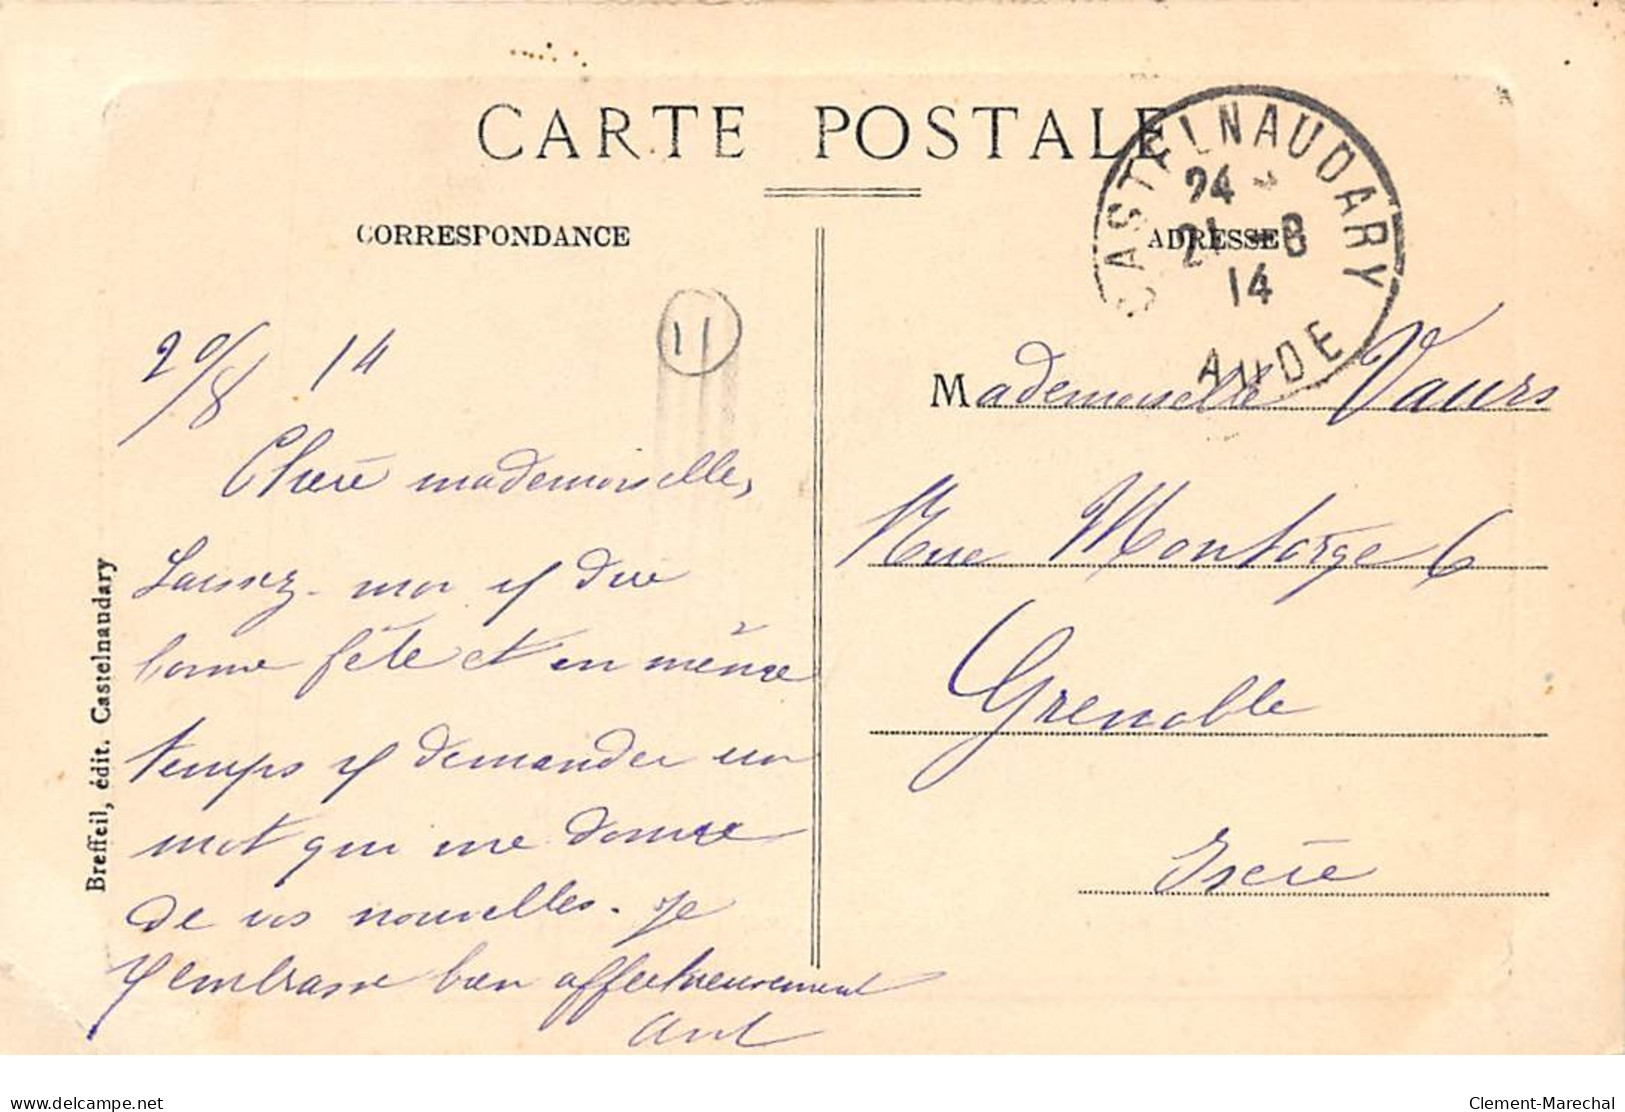 CARTE POSTALE
CORRESPONDANCE
ADRESSE
CASTELNAUDARY
24
21 - 8
14
AUDE
11
20/8 14
Chère mademoiselle,
Laissez-moi dire
bonne fête et en même
temps demander un
mot qui me donne
de vos nouvelles. Je
embrasse bien affectueusement
Mademoiselle Vaurs
Rue Montorge 6
Grenoble
Isère
Breffeil, édit. Castelnaudary
delcampe.net
Clement-Marechal